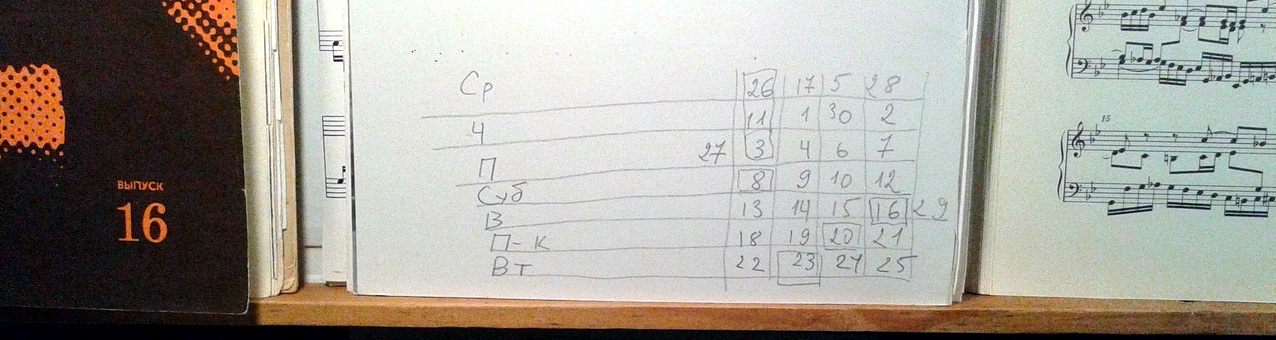 Ср 26 17 5 28
Ч 11 1 30 2
П 27 3 4 6 7
Суб 8 9 10 12
В 13 14 15 16 29
П-к 18 19 20 21
Вт 22 23 24 25
ВЫПУСК
16
15